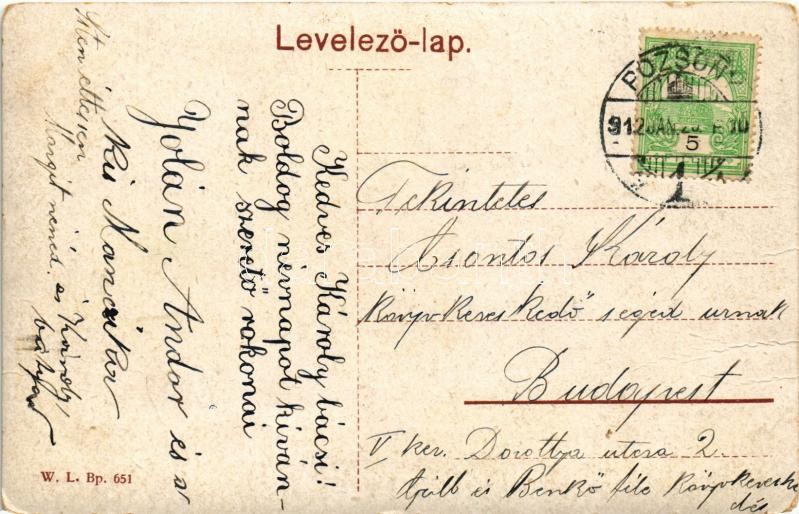 Levelező-lap.
POZSONY
912 JAN. 
5
Kedves Károly bácsi!
Boldog névnapot kíván-
nak szerető rokonai
Yolán Andor és a
kis Mancika
Isten éltessen
Margit nénéd. és Károly
Tekintetes
Csontos Károly
Könyvkereskedő segéd urnak
Budapest
V ker. Dorottya utcza 2.
Grill és Benkő féle Könyvkereske
dés
W. L. Bp. 651